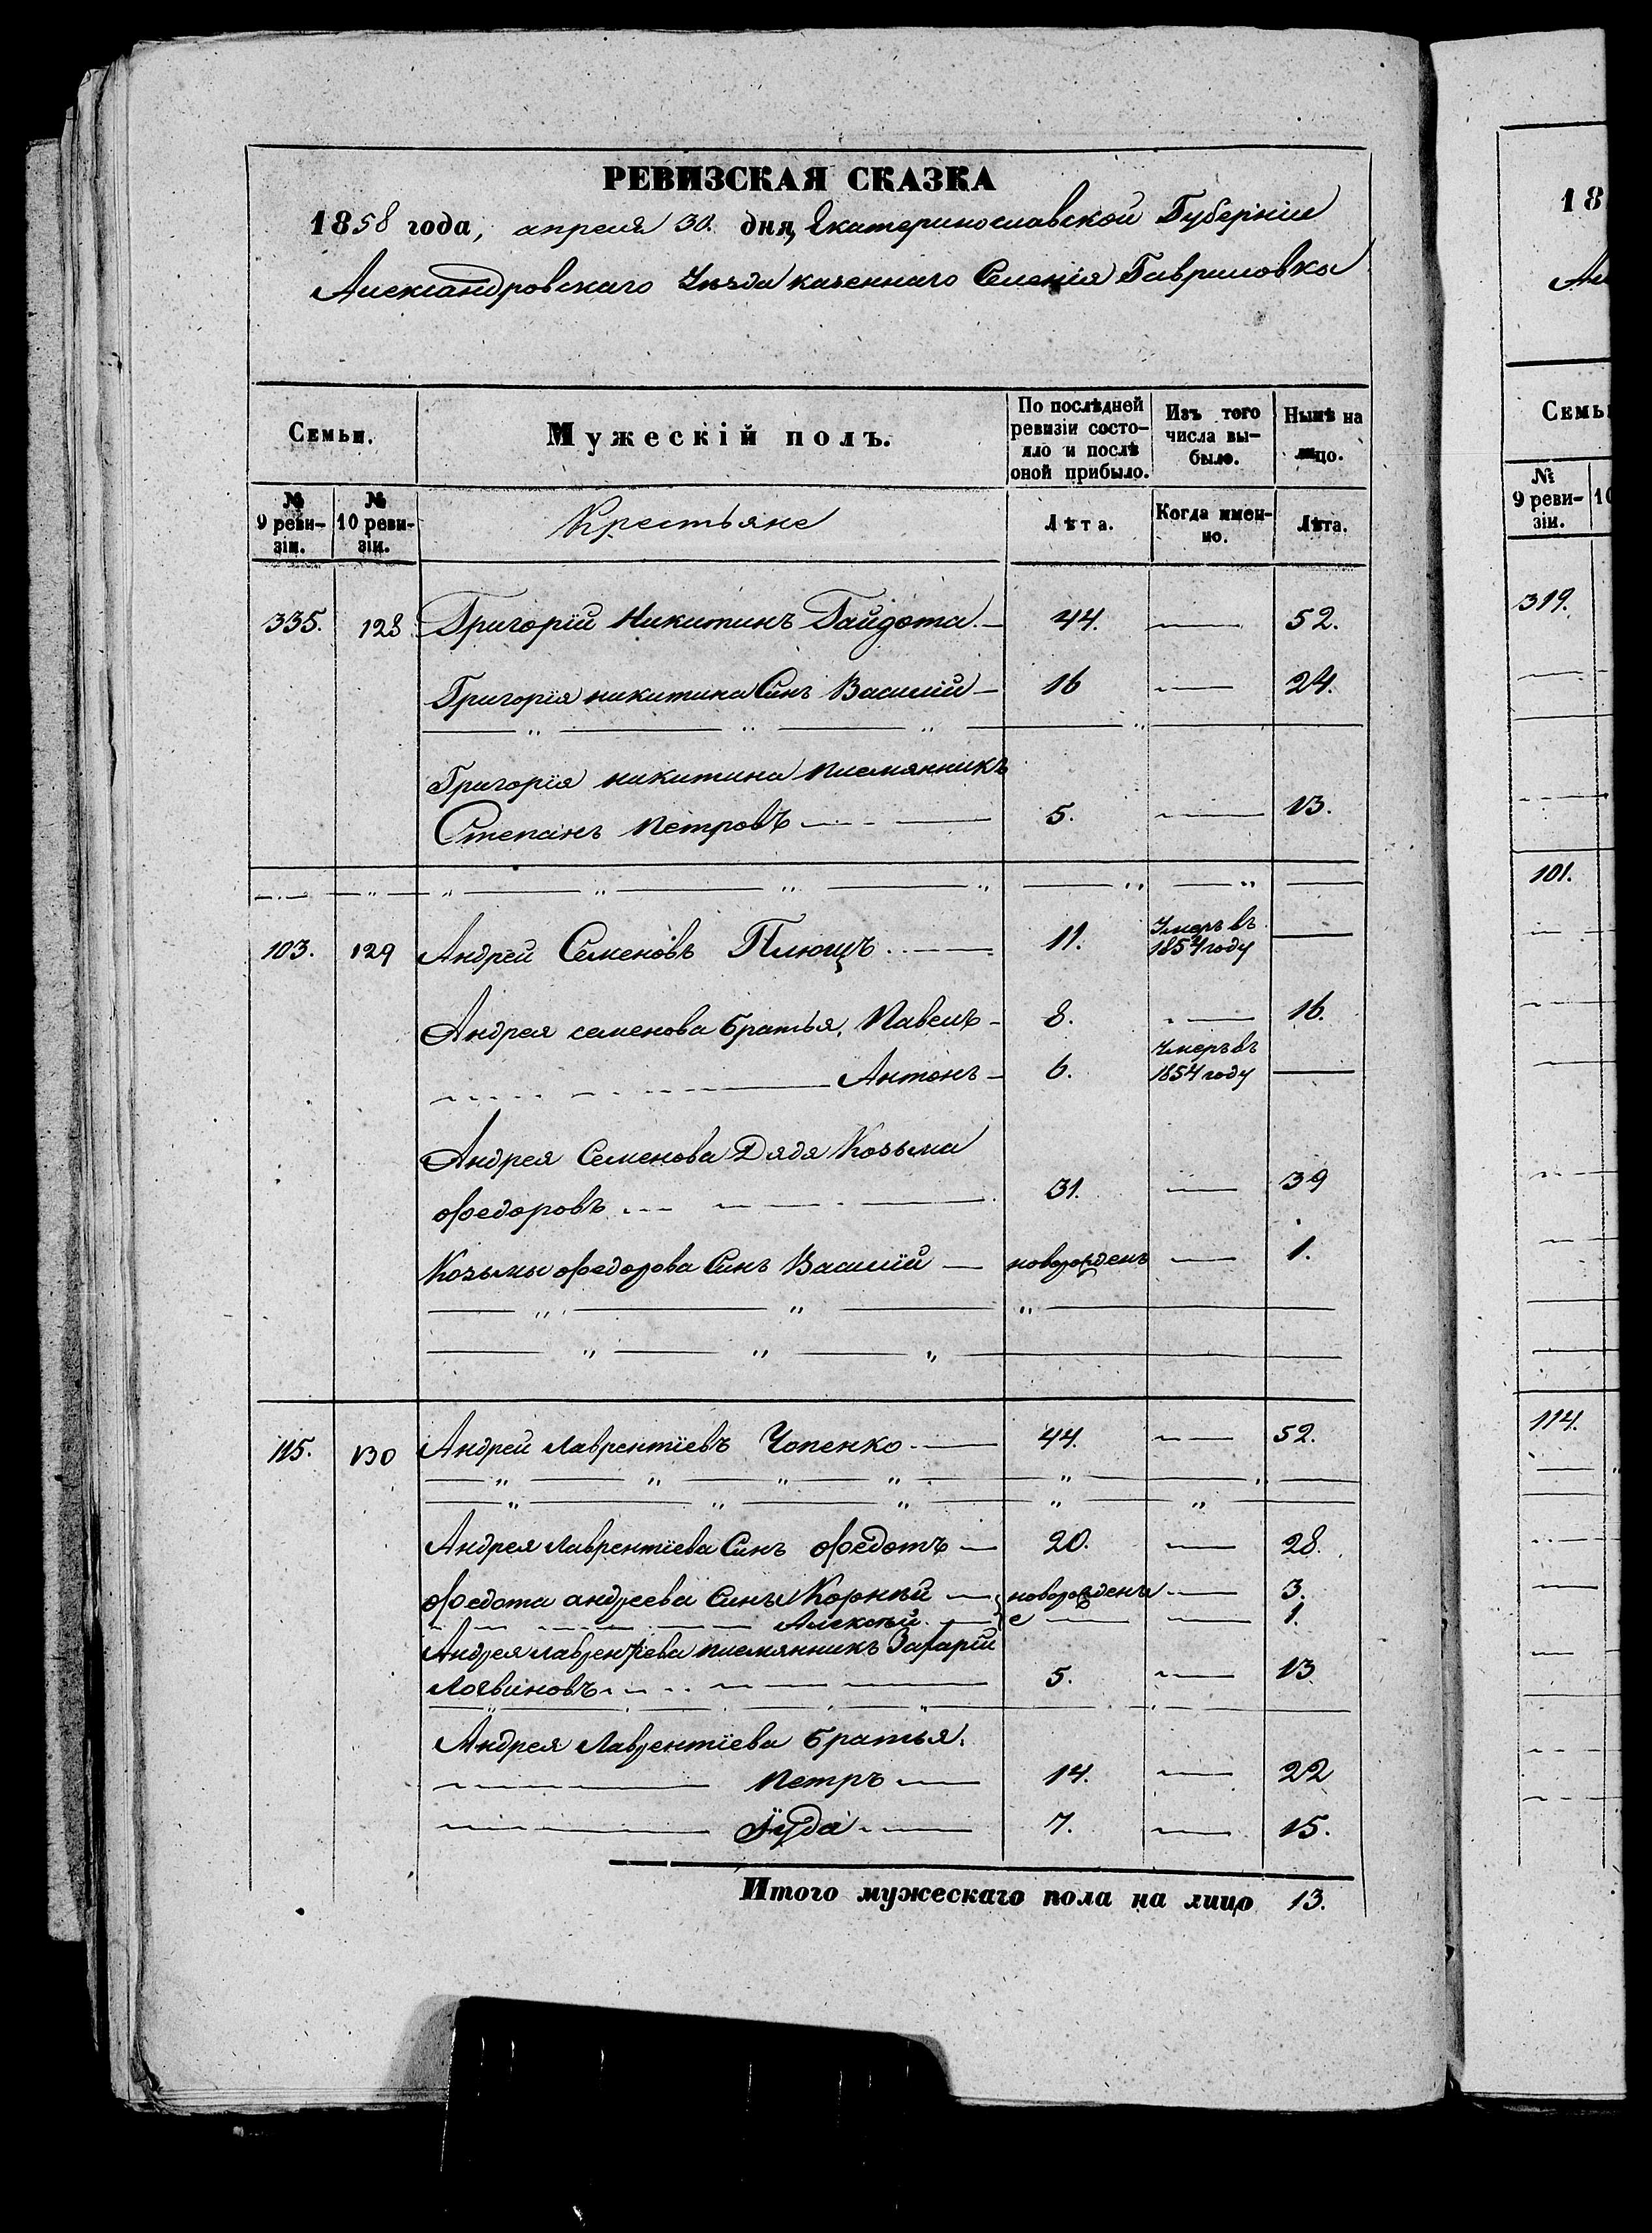 РЕВИЗСКАЯ СКАЗКА
1858 года, апреля 30. дня, Екатеринославской Губерніи
Александровскаго Уѣзда казеннаго Селенія Гавриловка
Семьи.
Мужескій полъ.
По послѣдней ревизіи состояло и послѣ оной прибыло.
Изъ того числа выбыло.
Нынѣ на лицо.
№ 9 ревизіи.
№ 10 ревизіи.
Крестьяне
Лѣта.
Когда именно.
Лѣта.
335. 128 Григорій Никитинъ Гайдота. — 44. — 52.
Григорія никитина Синъ Василій — 16 — 24.
Григорія никитина племянникъ
Степанъ петровъ — 5. — 13.
103. 129 Андрей Семеновъ Плющъ — 11. Умеръ въ 1854 году —
Андрея семенова братья, Павелъ — 8. — 16.
Антонъ — 6. Умеръ въ 1854 году —
Андрея Семенова Дядя Козьма
Федоровъ — 31. — 39
Козьмы Федорова Синъ Василій — новорожденъ — 1.
115. 130 Андрей Лаврентіевъ Чопенко — 44. — 52.
Андрея Лаврентіева Синъ Федотъ — 20. — 28.
Федота андреева Сины Корнѣй — новорожденъ — 3.
Алексѣй — е — 1.
Андрея лаврентіева племянникъ Захарій
Логвиновъ — 5. — 13
Андрея Лаврентіева братья.
петръ — 14. — 22
Іуда — 7. — 15.
Итого мужескаго пола на лицо 13.
18
Ал
Семьи
№ 9 ревизіи.
10
319.
101.
114.